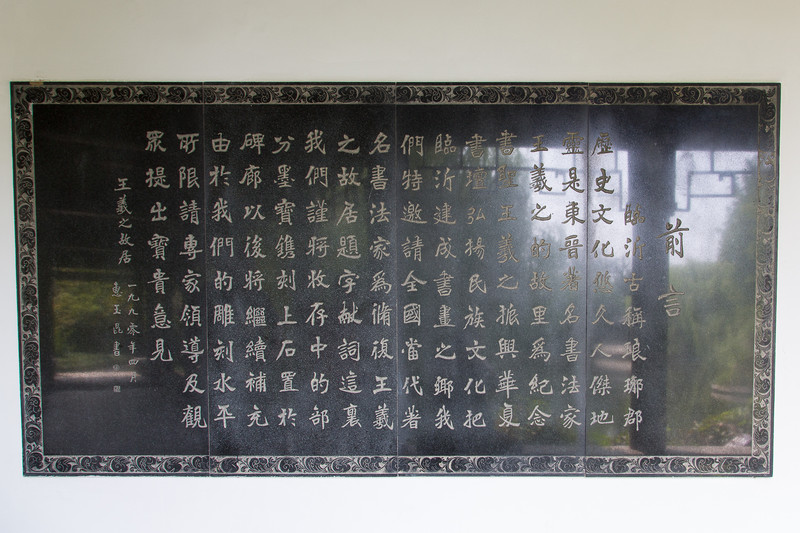 前言
臨沂古稱琅琊郡
歷史文化悠久人傑地
靈是東晉著名書法家
王羲之的故里爲紀念
書聖王羲之振興華夏
書壇弘揚民族文化把
臨沂建成書畫之鄉我
們特邀請全國當代著
名書法家爲脩復王羲
之故居題字獻詞這裏
我們謹將收存中的部
分墨寶鐫刻上石置於
碑廊以後將繼續補充
由於我們的雕刻水平
所限請專家領導及觀
眾提出寶貴意見
王羲之故居
一九九零年四月
惠玉昆書